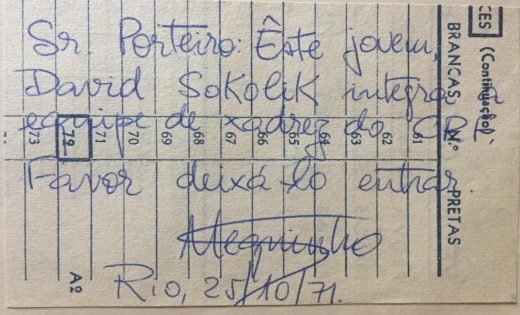 Sr. Porteiro: Êste jovem,
David Sokolik integra a
equipe de xadrez do CRF.
Favor deixá-lo entrar.
Mequinho
Rio, 25/10/71.
CES (Continuação)
BRANCAS N.º PRETAS
73 72 71 70 69 68 67 66 65 64 63 62 61
A2